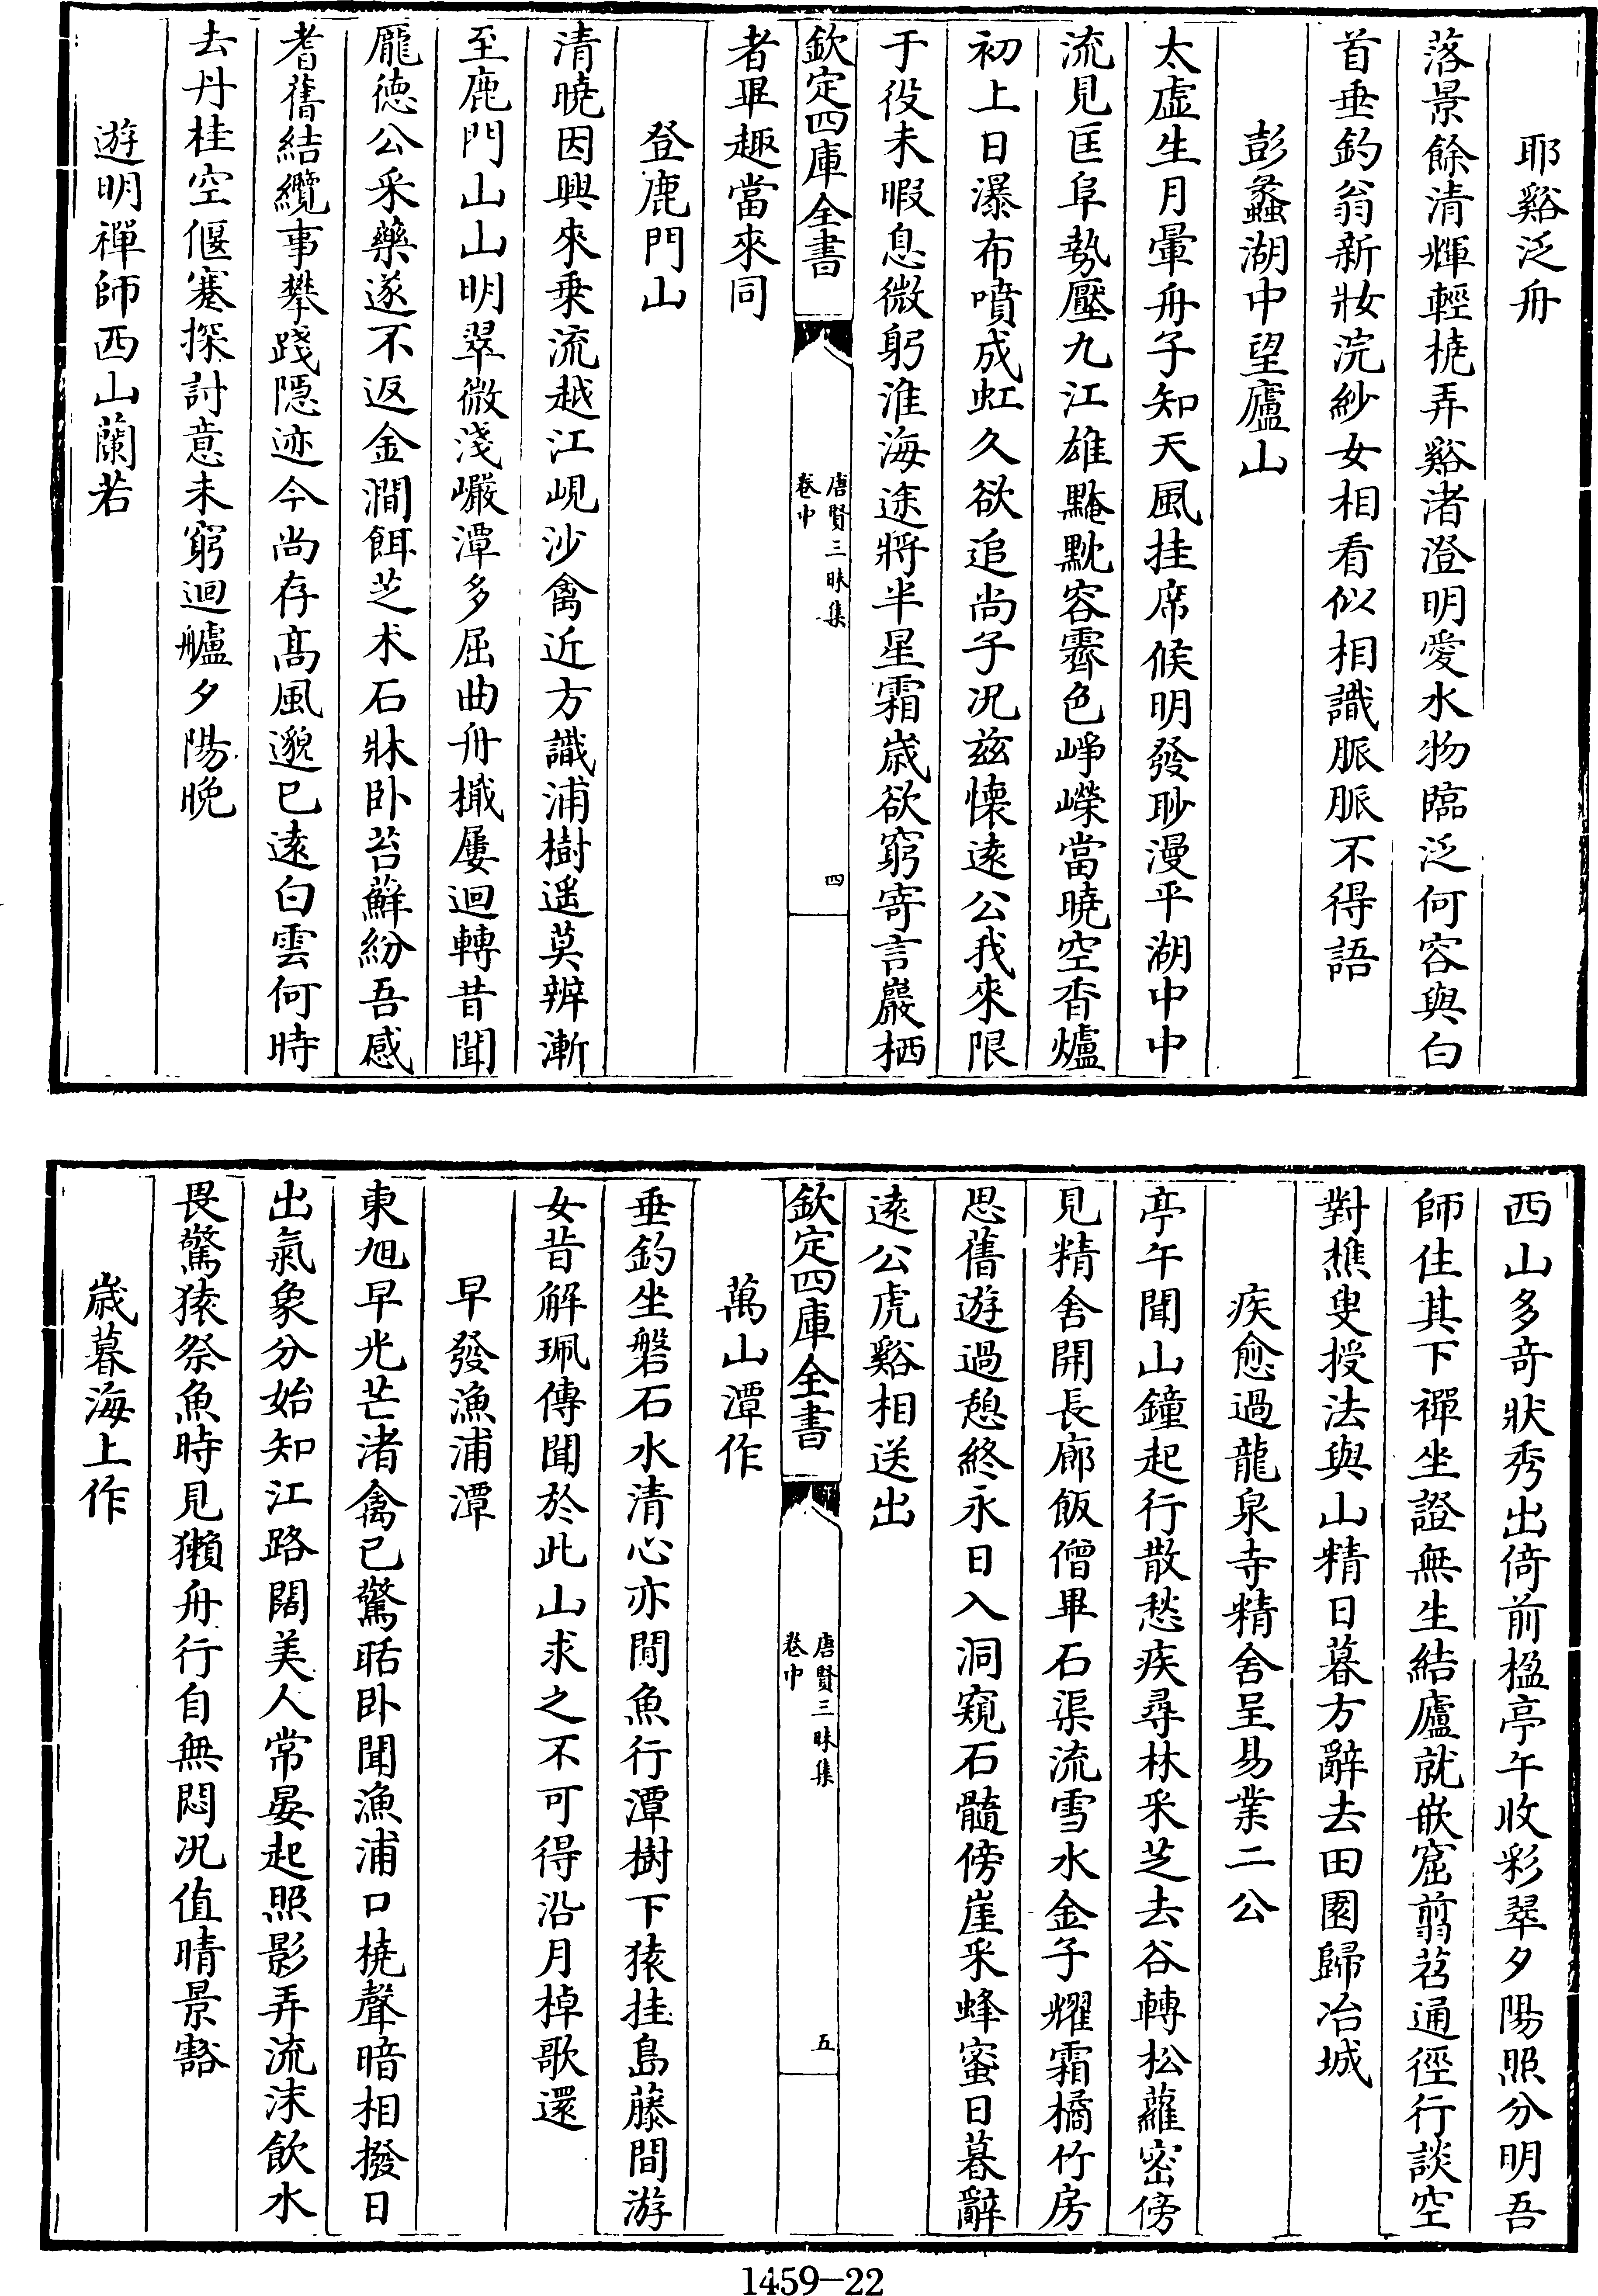 耶谿泛舟
落景餘清輝輕橈弄谿渚澄明愛水物臨泛何容與白
首垂釣翁新妝浣紗女相看似相識脈脈不得語
彭蠡湖中望廬山
太虛生月暈舟子知天風挂席候明發眇漫平湖中中
流見匡阜勢壓九江雄黤黕容霽色崢嶸當曉空香爐
初上日瀑布噴成虹久欲追尚子况兹懐逺公我來限
于役未暇息微躬淮海途將半星霜歲欲窮寄言巖栖
欽定四庫全書
唐賢三昧集
卷中
四
者畢趣當來同
登鹿門山
清曉因興來乗流越江峴沙禽近方識浦樹遥莫辨漸
至鹿門山山明翠微淺巖潭多屈曲舟檝屢迴轉昔聞
龐徳公采藥遂不返金澗餌芝术石牀卧苔蘚紛吾感
耆舊結纜事攀踐隱迹今尚存髙風邈已逺白雲何時
去丹桂空偃蹇探討意未窮迴艫夕陽晚
遊明禪師西山蘭若
西山多竒狀秀出倚前楹亭午收彩翠夕陽照分明吾
師住其下禪坐證無生結廬就嵌窟翦苕通徑行談空
對樵叟授法與山精日暮方辭去田園歸冶城
疾愈過龍泉寺精舍呈易業二公
亭午聞山鐘起行散愁疾尋林采芝去谷轉松蘿密傍
見精舍開長廊飯僧畢石渠流雪水金子耀霜橘竹房
思舊遊過憩終永日入洞窺石髓傍崖采蜂蜜日暮辭
逺公虎谿相送出
欽定四庫全書
唐賢三昧集
卷中
五
萬山潭作
垂釣坐磐石水清心亦閒魚行潭樹下猿挂島藤間游
女昔解珮傳聞於此山求之不可得沿月棹歌還
早發漁浦潭
東旭早光芒渚禽已驚聒卧聞漁浦口橈聲暗相撥日
出氣象分始知江路闊美人常晏起照影弄流沫飲水
畏驚猿祭魚時見獺舟行自無悶况值晴景豁
歲暮海上作
1459—22